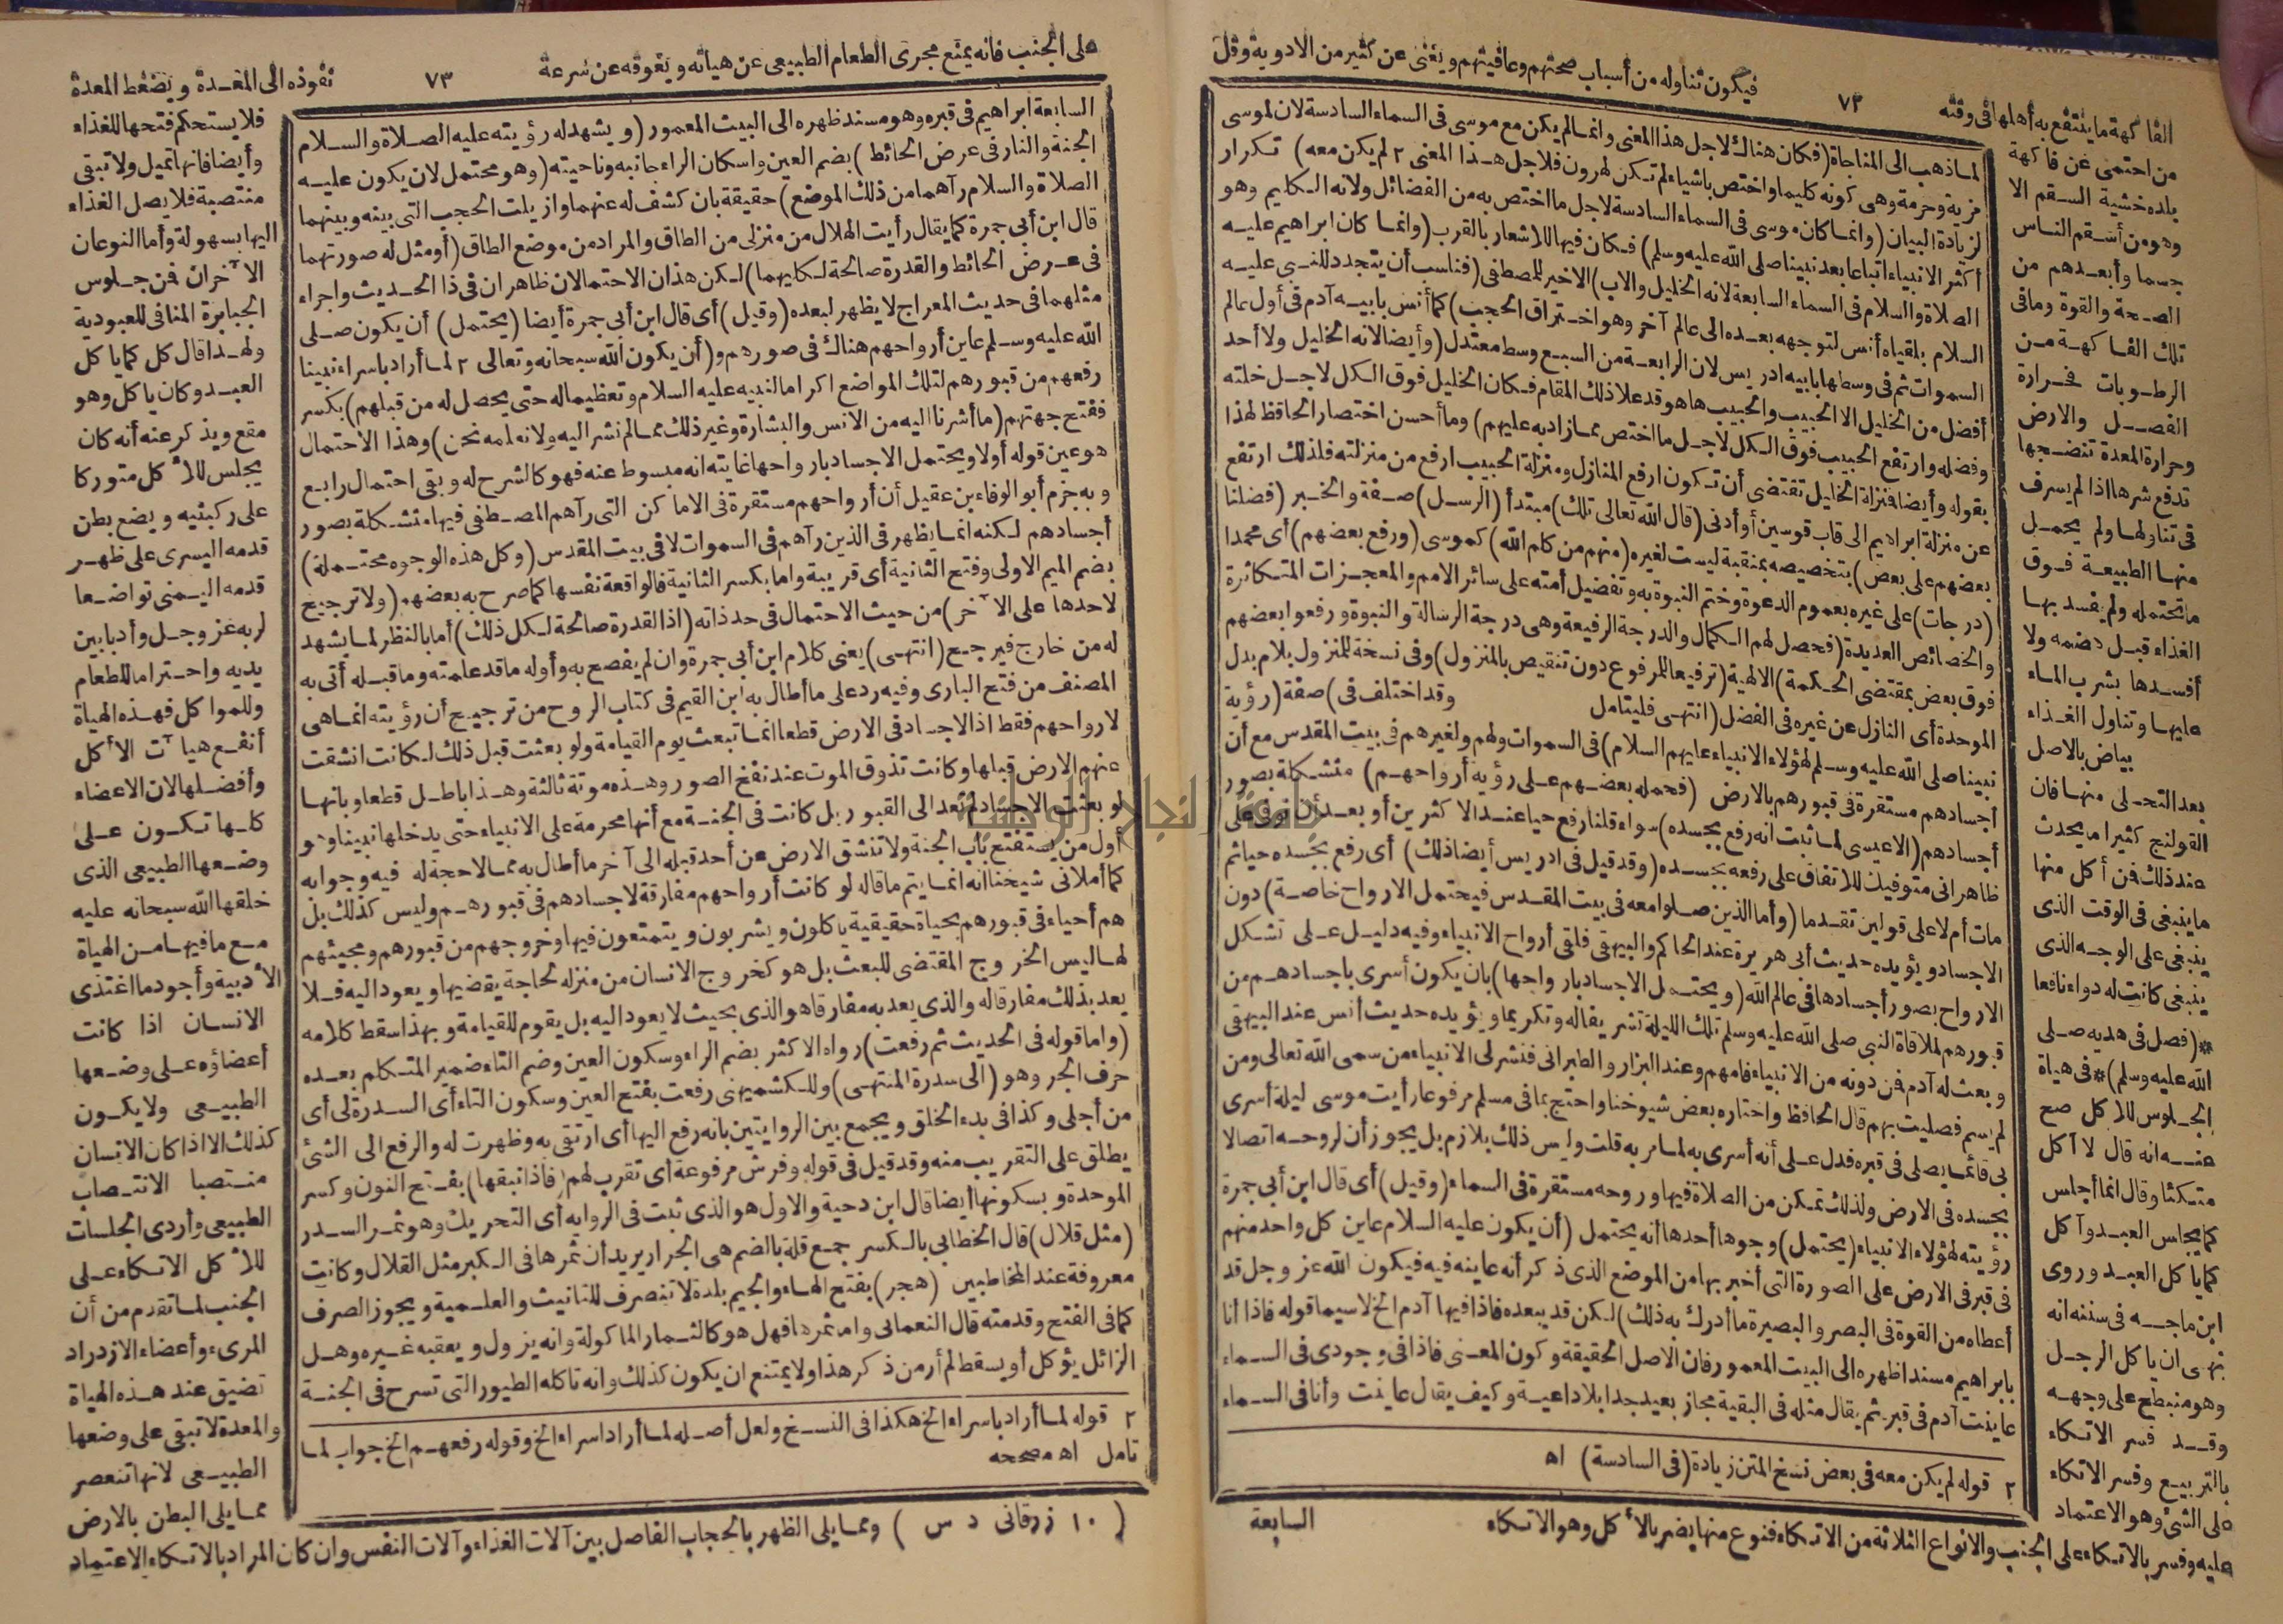 فيكون تناوله من أسباب صحتهم وعافيتهم ويغنى عن كثير من الادوية وقل
٧٢
الفاكهة ما ينتفع به أهلها فى وقته
من احتمى عن فاكهة
بلده خشية السقم الا
وهو من أسقم الناس
جسما وأبعدهم من
الصحة والقوة وما فى
تلك الفاكهة من
الرطوبات فحرارة
الفصل والارض
وحرارة المعدة تنضجها
وتدفع شرها اذا لم يسرف
فى تناولها ولم يحمل
منها الطبيعة فوق
ما تحتمله ولم يفسد بها
الغذاء قبل هضمه ولا
أفسدها بشرب الماء
عليها وتناول الغذاء
بياض بالاصل
بعد التحلى منها فان
القولنج كثيرا ما يحدث
عند ذلك فمن أكل منها
ما ينبغى فى الوقت الذى
ينبغى على الوجه الذى
ينبغى كانت له دواء نافعا
*(فصل فى هديه صلى
الله عليه وسلم)* فى هيأة
الجلوس للأكل صح
عنه انه قال لا آكل
متكئا وقال انما أجلس
كما يجلس العبد وآكل
كما يأكل العبد وروى
ابن ماجه فى سننه انه
نهى ان يأكل الرجل
وهو منبطح على وجهه
وقد فسر الاتكاء
بالتربيع وفسر الاتكاء
على الشئ وهو الاعتماد
عليه وفسر بالاتكاء على الجنب والانواع الثلاثة من الاتكاء فنوع منها يضر بالأكل وهو الاتكاء
لما ذهب الى المناجاة (فكان هناك لاجل هذا المعنى وانما لم يكن مع موسى فى السماء السادسة لان لموسى
مزية وحرمة وهى كونه كليما واختص باشياء لم تكن لهرون فلاجل هذا المعنى ٢ لم يكن معه) تكرار
لزيادة البيان (وانما كان موسى فى السماء السادسة لاجل ما اختص به من الفضائل ولانه الكليم وهو
أكثر الانبياء اتباعا بعد نبينا صلى الله عليه وسلم) فكان فيها للاشعار بالقرب (وانما كان ابراهيم عليه
الصلاة والسلام فى السماء السابعة لانه الخليل والاب) الاخير للمصطفى (فناسب أن يتجدد للنبى عليه
السلام بلقياه أنس لتوجهه بعده الى عالم آخر وهو اختراق الحجب) كما أنس بابيه آدم فى أول عالم
السموات ثم فى وسطها بابيه ادريس لان الرابعة من السبع وسط معتدل (وأيضا لانه الخليل ولا أحد
أفضل من الخليل الا الحبيب والحبيب ها هو قد علا ذلك المقام فكان الخليل فوق الكل لاجل خلته
وفضله وارتفع الحبيب فوق الكل لاجل ما اختص مما زاد به عليهم) وما أحسن اختصار الحافظ لهذا
بقوله وأيضا فمنزلة الخليل تقتضى أن تكون ارفع المنازل ومنزلة الحبيب ارفع من منزلته فلذلك ارتفع
عن منزلة ابراهيم الى قاب قوسين أو أدنى (قال الله تعالى تلك) مبتدأ (الرسل) صفة والخبر (فضلنا
بعضهم على بعض) بتخصيصه بمنقبة ليست لغيره (منهم من كلم الله) كموسى (ورفع بعضهم) أى محمدا
(درجات) على غيره بعموم الدعوة وختم النبوة به وتفضيل أمته على سائر الامم والمعجزات المتكاثرة
والخصائص العديدة (فحصل لهم الكمال والدرجة الرفيعة وهى درجة الرسالة والنبوة ورفعوا بعضهم
فوق بعض بمقتضى الحكمة) الالهية (ترفيعا للمرفوع دون تنقيص بالمنزول) وفى نسخة للمنزول بلام بدل
الموحدة أى النازل عن غيره فى الفضل (انتهى فليتأمل وقد اختلف فى) صفة (رؤية
نبينا صلى الله عليه وسلم لهؤلاء الانبياء عليهم السلام) فى السموات ولهم ولغيرهم فى بيت المقدس مع أن
أجسادهم مستقرة فى قبورهم بالارض (فحمله بعضهم على رؤية أرواحهم) متشكلة بصور
أجسادهم (الا عيسى لما ثبت انه رفع بجسده) سواء قلنا رفع حيا عند الاكثرين أو بعد أن توفى على
ظاهر انى متوفيك للاتفاق على رفعه بجسده (وقد قيل فى ادريس أيضا ذلك) أى رفع بجسده حيا ثم
مات أم لا على قولين تقدما (وأما الذين صلوا معه فى بيت المقدس فيحتمل الارواح خاصة) دون
الاجساد ويؤيده حديث أبى هريرة عند الحاكم والبيهقى فلقى أرواح الانبياء وفيه دليل على تشكل
الارواح بصور أجسادها فى عالم الله (ويحتمل الاجساد بارواحها) بان يكون أسرى باجسادهم من
قبورهم لملاقاة النبى صلى الله عليه وسلم تلك الليلة تشريفا له وتكريما ويؤيده حديث أنس عند البيهقى
وبعث له آدم فمن دونه من الانبياء فامهم وعند البزار والطبرانى فنشر لى الانبياء من سمى الله تعالى ومن
لم يسم فصليت بهم قال الحافظ واختاره بعض شيوخنا واحتج بما فى مسلم مرفوعا رأيت موسى ليلة أسرى
بى قائما يصلى فى قبره فدل على أنه أسرى به لما مر به قلت وليس ذلك بلازم بل يجوز أن لروحه اتصالا
بجسده فى الارض ولذلك تمكن من الصلاة فيها وروحه مستقرة فى السماء (وقيل) أى قال ابن أبى جمرة
رؤيته لهؤلاء الانبياء (يحتمل) وجوها أحدها أنه يحتمل (أن يكون عليه السلام عاين كل واحد منهم
فى قبر فى الارض على الصورة التى أخبر بها من الموضع الذى ذكر أنه عاينه فيه فيكون الله عز وجل قد
أعطاه من القوة فى البصر والبصيرة ما أدرك به ذلك) لكن قد يبعده فاذا فيها آدم الخ لاسيما قوله فاذا أنا
بابراهيم مسندا ظهره الى البيت المعمور فان الاصل الحقيقة وكون المعنى فاذا فى وجودى فى السماء
عاينت آدم فى قبره ثم يقال مثله فى البقية مجاز بعيد جدا بلا داعية وكيف يقال عاينت وأنا فى السماء
٢ قوله لم يكن معه فى بعض نسخ المتن زيادة (فى السادسة) اه
السابعة
على الجنب فانه يمنع مجرى الطعام الطبيعى عن هيأته ويعوقه عن سرعة
٧٣
نفوذه الى المعدة ويضغط المعدة
السابعة ابراهيم فى قبره وهو مسند ظهره الى البيت المعمور (ويشهد له رؤيته عليه الصلاة والسلام
الجنة والنار فى عرض الحائط) بضم العين واسكان الراء جانبه وناحيته (وهو محتمل لان يكون عليه
الصلاة والسلام رآهما من ذلك الموضع) حقيقة بان كشف له عنهما وازيلت الحجب التى بينه وبينهما
قال ابن أبى جمرة كما يقال رأيت الهلال من منزلى من الطاق والمراد من موضع الطاق (أو مثل له صورتهما
فى عرض الحائط والقدرة صالحة لكليهما) لكن هذان الاحتمالان ظاهران فى ذا الحديث واجراء
مثلهما فى حديث المعراج لا يظهر لبعده (وقيل) أى قال ابن أبى جمرة أيضا (يحتمل) أن يكون صلى
الله عليه وسلم عاين أرواحهم هناك فى صورهم و(أن يكون الله سبحانه وتعالى ٢ لما أراد باسراء نبينا
رفعهم من قبورهم لتلك المواضع اكراما لنبيه عليه السلام وتعظيما له حتى يحصل له من قبلهم) بكسر
ففتح جهتهم (ما أشرنا اليه من الانس والبشارة وغير ذلك مما لم نشر اليه ولا نعلمه نحن) وهذا الاحتمال
هو عين قوله أولا ويحتمل الاجساد بارواحها غايته انه مبسوط عنه فهو كالشرح له وبقى احتمال رابع
وبه جزم أبو الوفاء بن عقيل أن أرواحهم مستقرة فى الاماكن التى رآهم المصطفى فيها متشكلة بصور
أجسادهم لكنه انما يظهر فى الذين رآهم فى السموات لا فى بيت المقدس (وكل هذه الوجوه محتملة)
بضم الميم الاولى وفتح الثانية أى قريبة واما بكسر الثانية فالواقعة نفسها كما صرح به بعضهم (ولا ترجيح
لاحدها على الآخر) من حيث الاحتمال فى حد ذاته (اذ القدرة صالحة لكل ذلك) أما بالنظر لما يشهد
له من خارج فيرجع (انتهى) يعنى كلام ابن أبى جمرة وان لم يفصح به وأوله ما قد علمته وما قبله أتى به
المصنف من فتح البارى وفيه رد على ما أطال به ابن القيم فى كتاب الروح من ترجيح أن رؤيته انما هى
لارواحهم فقط اذ الاجساد فى الارض قطعا انما تبعث يوم القيامة ولو بعثت قبل ذلك لكانت انشقت
عنهم الارض قبلها وكانت تذوق الموت عند نفخ الصور وهذه موتة ثالثة وهذا باطل قطعا وبانها
لو بعثت الاجساد لم تعد الى القبور بل كانت فى الجنة مع أنها محرمة على الانبياء حتى يدخلها نبينا وهو
أول من يستفتح باب الجنة ولا تنشق الارض عن أحد قبله الى آخر ما أطال به مما لا حجة له فيه وجوابه
كما أملانى شيخنا انه انما يتم ما قاله لو كانت أرواحهم مفارقة لاجسادهم فى قبورهم وليس كذلك بل
هم أحياء فى قبورهم بحياة حقيقية يأكلون ويشربون ويتمتعون فيها وخروجهم من قبورهم ومجيئهم
لها ليس الخروج المقتضى للبعث بل هو كخروج الانسان من منزله لحاجة يقضيها ويعود اليه فلا
يعد بذلك مفارقا له والذى يعد به مفارقا هو الذى بحيث لا يعود اليه بل يقوم للقيامة وبهذا سقط كلامه
(واما قوله فى الحديث ثم رفعت) رواه الاكثر بضم الراء وسكون العين وضم التاء ضمير المتكلم بعده
حرف الجر وهو (الى سدرة المنتهى) وللكشميهنى رفعت بفتح العين وسكون التاء أى السدرة لى أى
من أجلى وكذا فى بدء الخلق ويجمع بين الروايتين بانه رفع اليها أى ارتقى به وظهرت له والرفع الى الشئ
يطلق على التقريب منه وقد قيل فى قوله وفرش مرفوعة أى تقرب لهم (فاذا نبقها) بفتح النون وكسر
الموحدة وبسكونها أيضا قال ابن دحية والاول هو الذى ثبت فى الرواية أى التحريك وهو ثمر السدر
(مثل قلال) قال الخطابى بالكسر جمع قلة بالضم هى الجرار يريد أن ثمرها فى الكبر مثل القلال وكانت
معروفة عند المخاطبين (هجر) بفتح الهاء والجيم بلدة لا تنصرف للتانيث والعلمية ويجوز الصرف
كما فى الفتح وقدمته قال النعمانى وامد ثمرها فهل هو كالثمار الماكولة وانه يزول ويعقبه غيره وهل
الزائل يؤكل أو يسقط لم أر من ذكر هذا ولا يمتنع ان يكون كذلك وانه تاكله الطيور التى تسرح فى الجنة
٢ قوله لما أراد باسراء الخ هكذا فى النسخ ولعل أصله لما أراد اسراء الخ وقوله رفعهم الخ جواب لما
تامل اه مصححه
فلا يستحكم فتحها للغذاء
وأيضا فانها تميل ولا تبقى
منتصبة فلا يصل الغذاء
اليها بسهولة وأما النوعان
الآخران فمن جلوس
الجبابرة المنافى للعبودية
ولهذا قال آكل كما يأكل
العبد وكان يأكل وهو
مقع ويذكر عنه أنه كان
يجلس للأكل متوركا
على ركبتيه ويضع بطن
قدمه اليسرى على ظهر
قدمه اليمنى تواضعا
لربه عز وجل وأدبا بين
يديه واحتراما للطعام
وللمواكل فهذه الهيأة
أنفع هيآت الأكل
وأفضلها لان الاعضاء
كلها تكون على
وضعها الطبيعى الذى
خلقها الله سبحانه عليه
مع ما فيها من الهيأة
الأدبية وأجود ما اغتذى
الانسان اذا كانت
أعضاؤه على وضعها
الطبيعى ولا يكون
كذلك الا اذا كان الانسان
منتصبا الانتصاب
الطبيعى وأردى الجلسات
للأكل الاتكاء على
الجنب لما تقدم من أن
المرىء وأعضاء الازدراد
تضيق عند هذه الهيأة
والمعدة لا تبقى على وضعها
الطبيعى لانها تنعصر
مما يلى البطن بالارض
ومما يلى الظهر بالحجاب الفاصل بين آلات الغذاء وآلات النفس وان كان المراد بالاتكاء الاعتماد
(١٠ زرقانى د س)
جامعة النجاح الوطنية